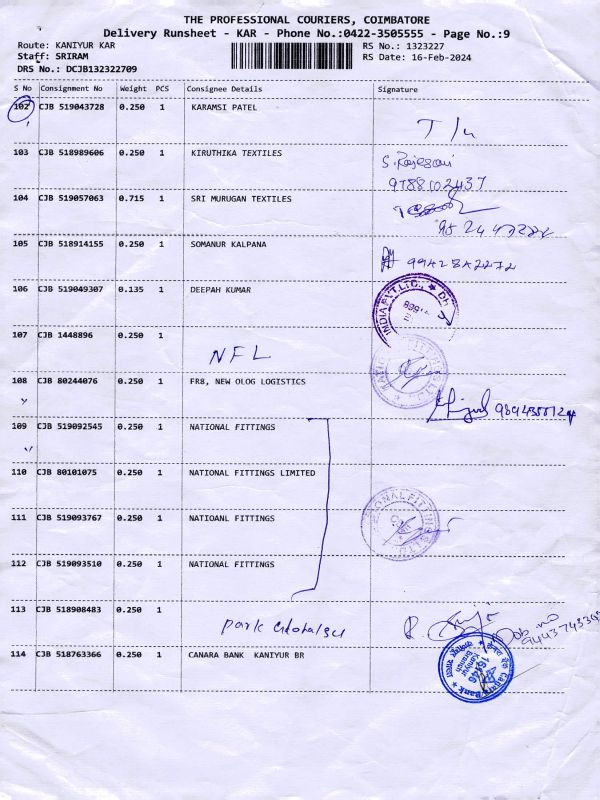 THE PROFESSIONAL COURIERS, COIMBATORE
Delivery Runsheet - KAR - Phone No.:0422-3505555 - Page No.:9
Route: KANIYUR KAR
RS No.: 1323227
Staff: SRIRAM
RS Date: 16-Feb-2024
DRS No.: DCJB132322709
S No Consignment No Weight PCS Consignee Details Signature
102 CJB 519043728 0.250 1 KARAMSI PATEL
103 CJB 518989606 0.250 1 KIRUTHIKA TEXTILES
9788102437
104 CJB 519057063 0.715 1 SRI MURUGAN TEXTILES
105 CJB 518914155 0.250 1 SOMANUR KALPANA
9942842272
106 CJB 519049307 0.135 1 DEEPAH KUMAR
INDIA PVT.LTD.
107 CJB 1448896 0.250 1
NFL
108 CJB 80244076 0.250 1 FR8, NEW OLOG LOGISTICS
109 CJB 519092545 0.250 1 NATIONAL FITTINGS
110 CJB 80101075 0.250 1 NATIONAL FITTINGS LIMITED
111 CJB 519093767 0.250 1 NATIOANL FITTINGS
NATIONAL FITTINGS LTD
112 CJB 519093510 0.250 1 NATIONAL FITTINGS
113 CJB 518908483 0.250 1
Park
114 CJB 518763366 0.250 1 CANARA BANK KANIYUR BR
16146
Kaniyur
Branch
Canara Bank